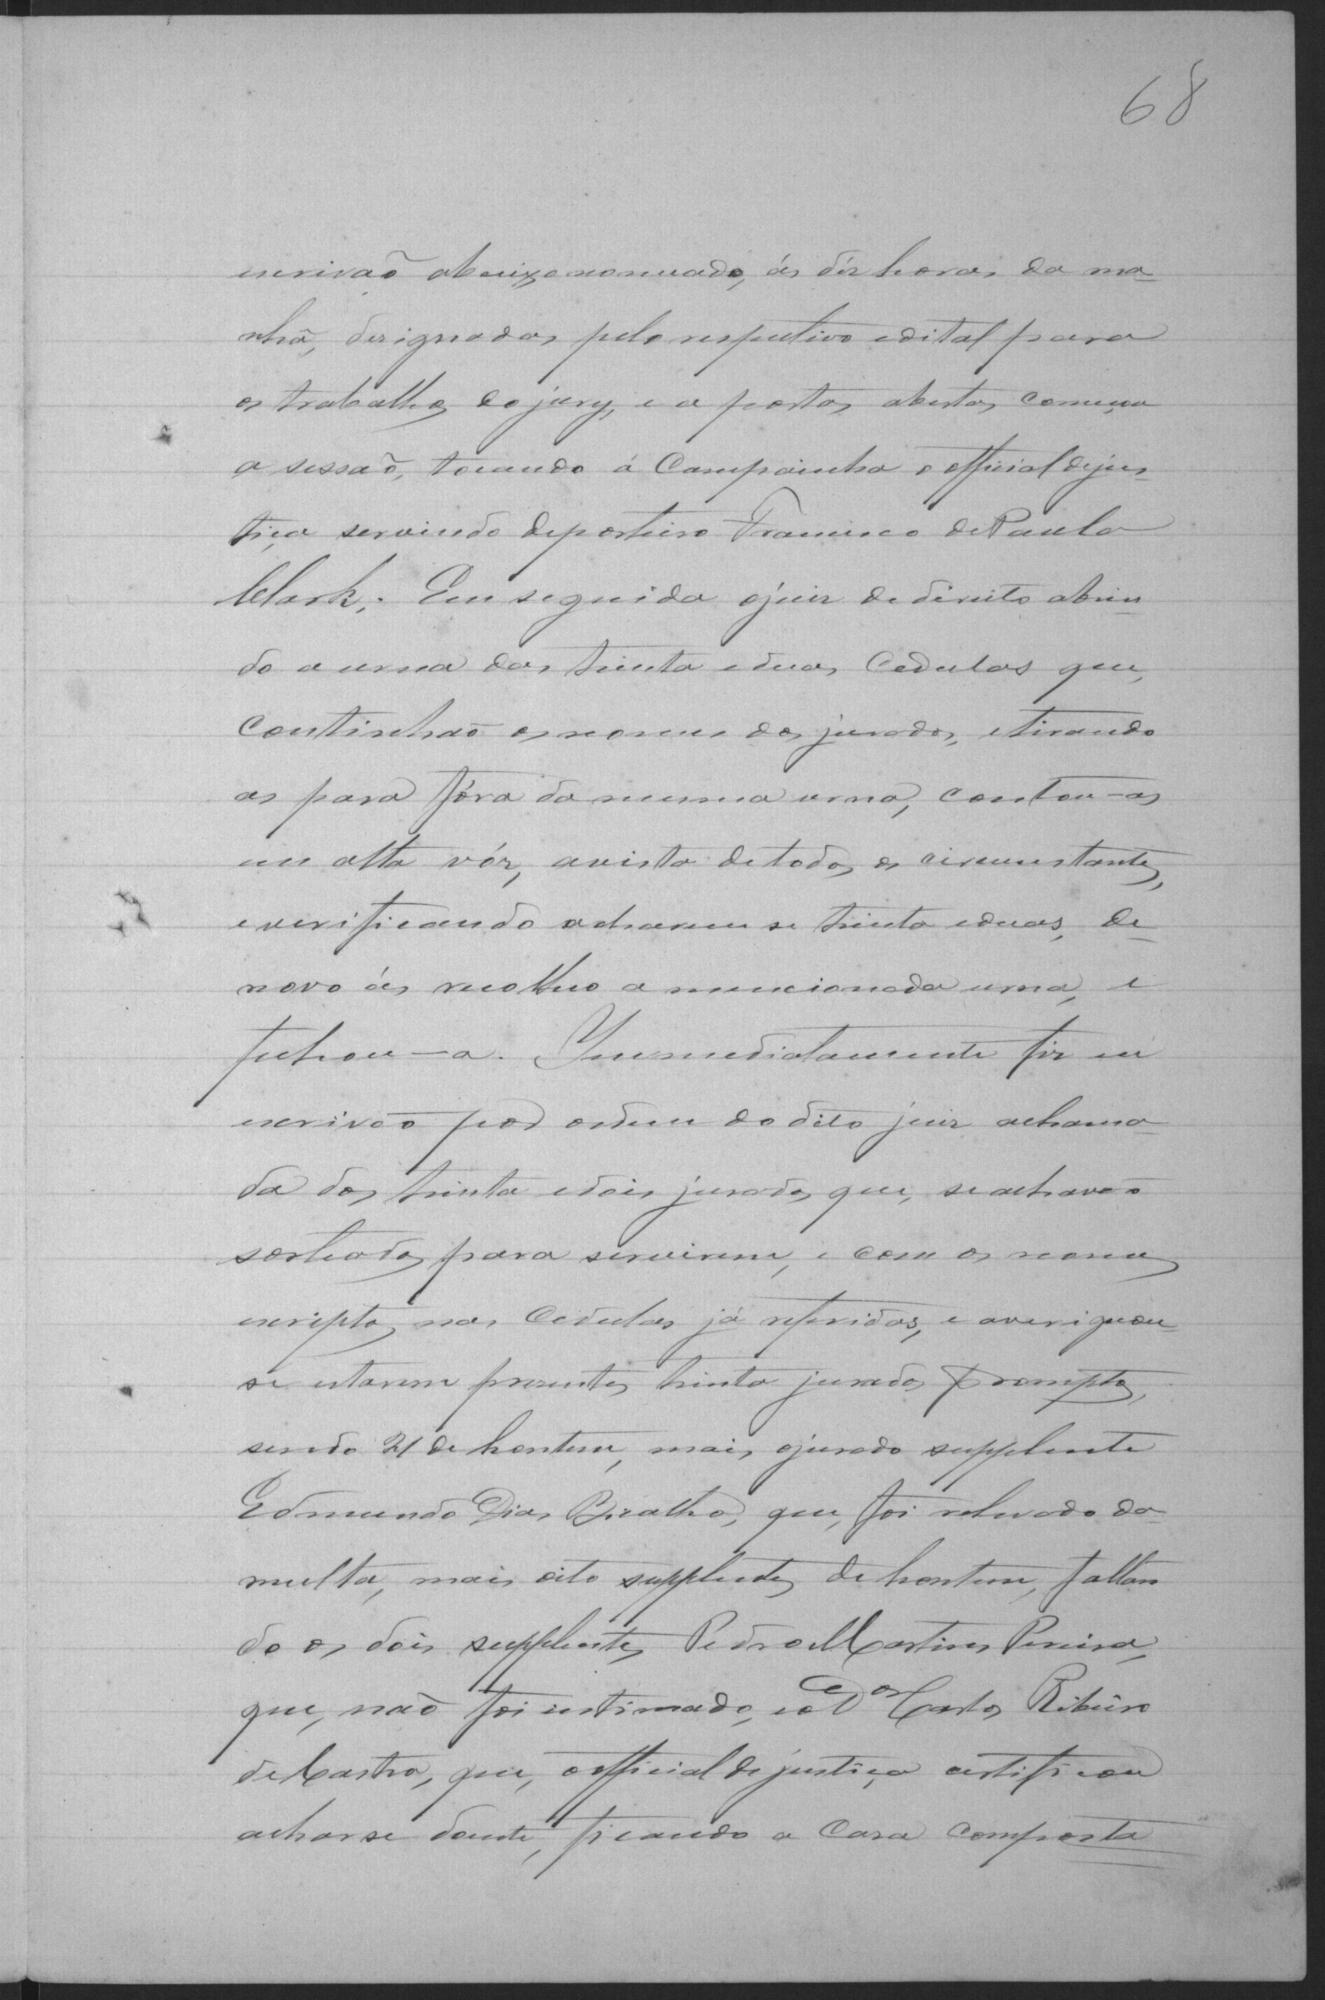 68
escrivaõ abaixo nomeado, ás déz horas da ma-
nhã, designadas pelo respectivo edital para
os trabalhos do jury, e a portas abertas começou
a sessaõ, tocando á Campainha o official de jus-
tiça servindo de porteiro Francisco de Paula
Clark. Em seguida o juiz de direito abrin-
do a urna das trinta e duas Cedulas que,
continhaõ os nomes dos jurados, e tirando
as para fóra da mesma urna, contou-as
em alta vóz, a vista de todos os circumstantes,
e verificando acharem se trinta e duas, de
novo ás recolheo a mencionada urna, e
fechou-a. Immediatamente fiz eu
escrivaõ por ordem do dito juiz a chama-
da dos trinta e dois jurados que, se achavaõ
sorteados para servirem, e com os nomes
escriptos nas Cedulas já referidas, e averiguou-
se estarem presentes trinta jurados promptos,
sendo 21 de hontem, mais o jurado supplente
Edmundo Dias que, foi relevado da
multa, mais oito supplentes de hontem, faltan
do os dois supplentes Pedro Martins Pereira,
que, não foi intimado, e o Dor Carlos Ribeiro
de Castro, que, o official de justiça certificou
achar se doente, ficando a Casa composta